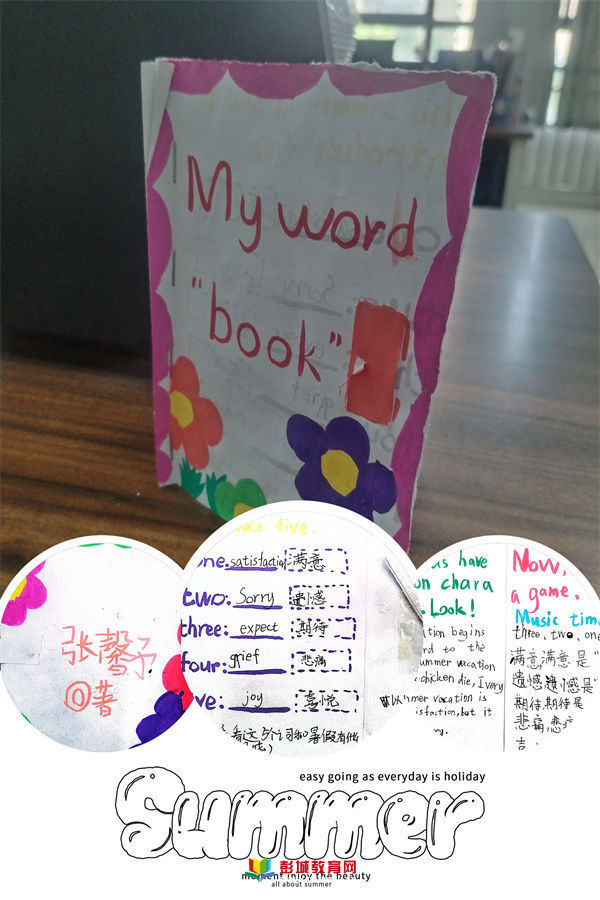 My word
"book"
张馨予
◎著
ke five.
one: satisfaction 满意
two: Sorry 遗憾
three: expect 期待
four: grief 悲痛
ve: joy 喜悦
us have
on chara
Look!
tion begins
rd to the
ummer vacation
chicken die, I very
mmer vacation is
isfaction, but it
Now,
a game.
Music tim
three, two, one
满意,满意是"
遗憾遗憾是
期待,期待是
悲痛 悲
easy going as everyday is holiday
Summer
彭城教育网
moment injoy the beauty
all about summer